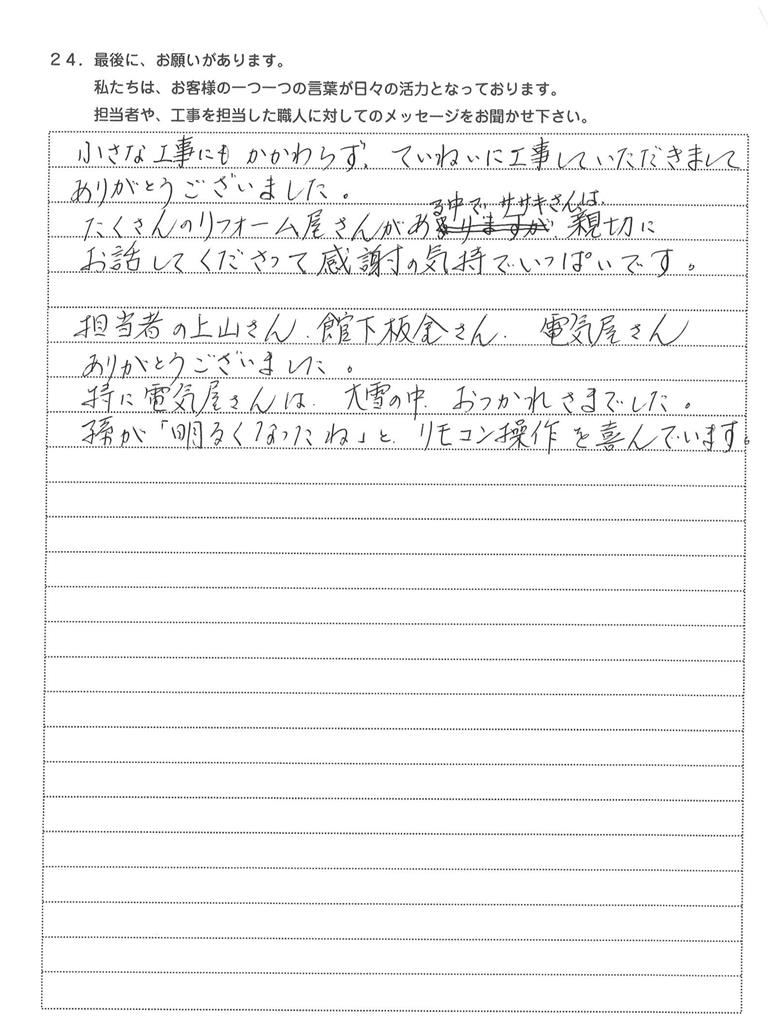 24．最後に、お願いがあります。
私たちは、お客様の一つ一つの言葉が日々の活力となっております。
担当者や、工事を担当した職人に対してのメッセージをお聞かせ下さい。
小さな工事にもかかわらず、ていねいに工事していただきまして
ありがとうございました。
る中で、ササキさんは、
たくさんのリフォーム屋さんがありますが 親切に
お話してくださって感謝の気持でいっぱいです。
担当者の上山さん、館下板金さん、電気屋さん
ありがとうございました。
特に電気屋さんは、大雪の中、おつかれさまでした。
孫が「明るくなったね」と、リモコン操作を喜んでいます。